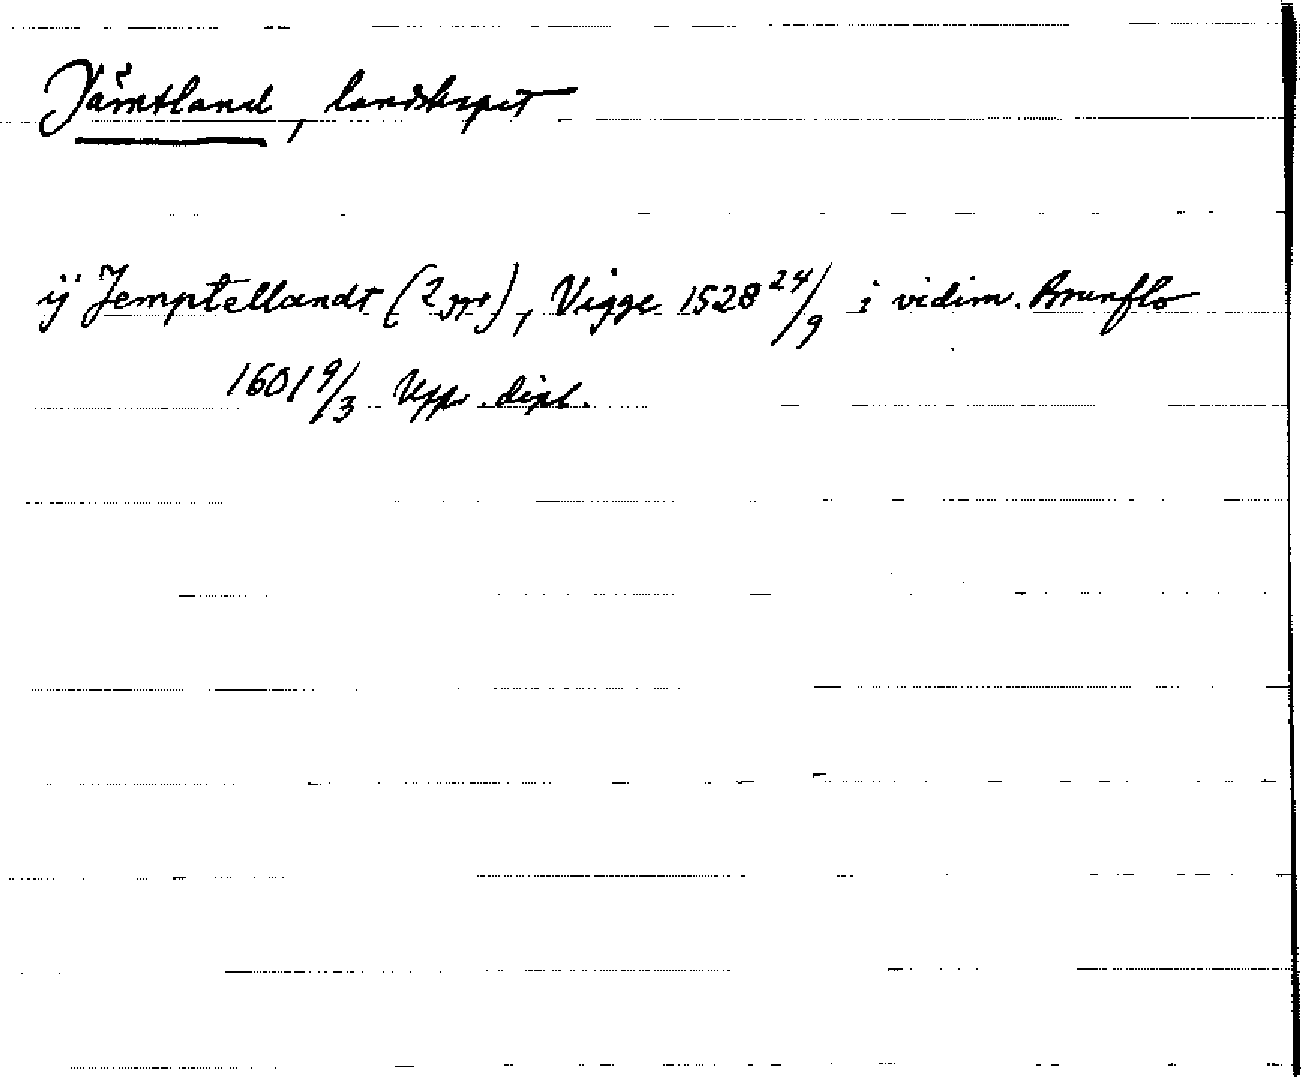 Jämtland, landskapet
ij Jemptellandt (2 ggr), Vigge 1528 24/9 i vidim. Brunflo
1601 9/3 Upps. dipl.